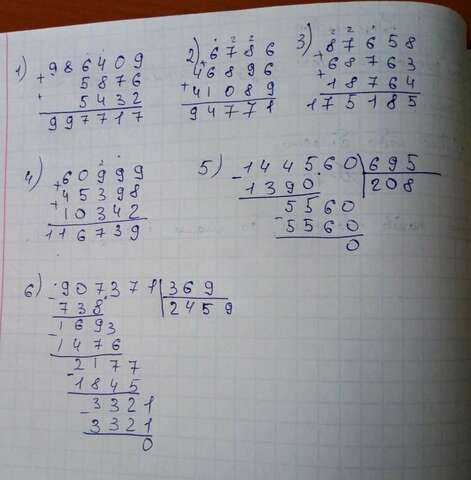 1) 986409
+ 5876
+ 5432
997717
2) 6786
+ 46896
+ 41089
94771
3) 87658
+ 68763
+ 18764
175185
4) 60999
+ 45398
+ 10342
116739
5) 144560 | 695
- 1390 | 208
5560
- 5560
0
6) 907371 | 369
- 738 | 2459
1693
- 1476
2177
- 1845
3321
- 3321
0